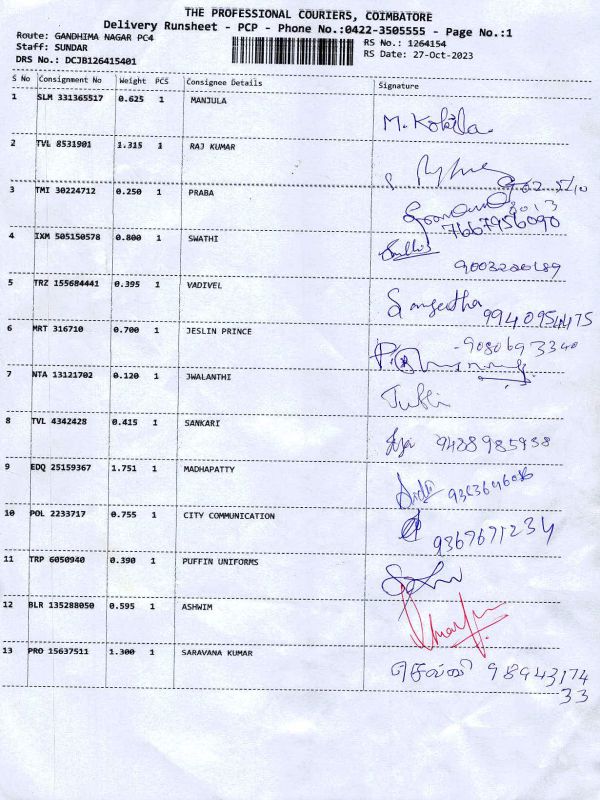 THE PROFESSIONAL COURIERS, COIMBATORE
Delivery Runsheet - PCP - Phone No.:0422-3505555 - Page No.:1
Route: GANDHIMA NAGAR PC4
RS No.: 1264154
Staff: SUNDAR
RS Date: 27-Oct-2023
DRS No.: DCJB126415401
S No Consignment No Weight PCS Consignee Details Signature
1 SLM 331365517 0.625 1 MANJULA M. Kokila
2 TVL 8531901 1.315 1 RAJ KUMAR
3 TMI 30224712 0.250 1 PRABA
7667956090
4 IXM 505150578 0.800 1 SWATHI
5 TRZ 155684441 0.395 1 VADIVEL Sangeetha
9940954475
6 MRT 316710 0.700 1 JESLIN PRINCE
7 NTA 13121702 0.120 1 JWALANTHI
8 TVL 4342428 0.415 1 SANKARI 9488985938
9 EDQ 25159367 1.751 1 MADHAPATTY
10 POL 2233717 0.755 1 CITY COMMUNICATION
11 TRP 6050940 0.390 1 PUFFIN UNIFORMS
12 BLR 135288050 0.595 1 ASHWIM
13 PRO 15637511 1.300 1 SARAVANA KUMAR செல்வி 98943174
33